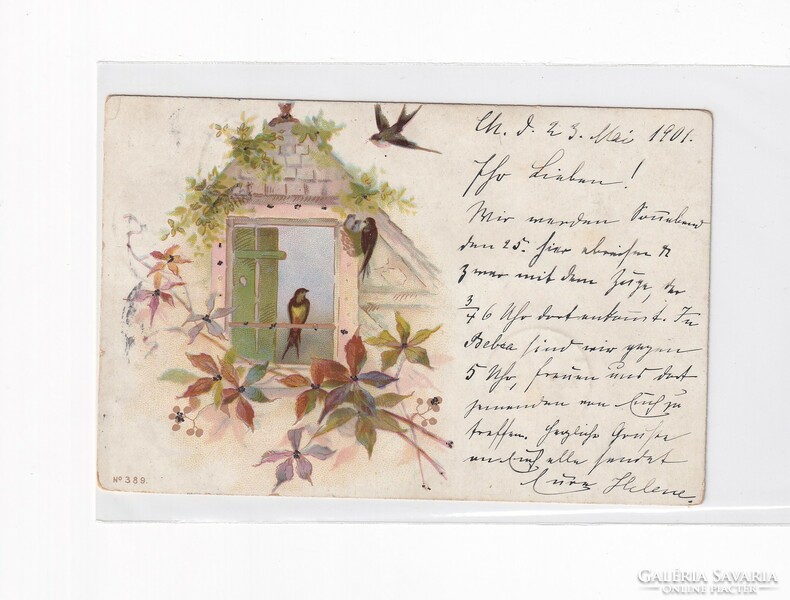 Ch. d. 23. Mai 1901.
Ihr Lieben!
Wir werden Sonnabend
den 25. hier abreisen u
zwar mit dem Zuge, der
3/4 6 Uhr dort ankommt. In
Bebra sind wir gegen
5 Uhr, freuen uns dort
jemanden von Euch zu
treffen. Herzliche Grüsse
an Euch alle sendet
Eure Helene.
No 389.
GALÉRIA SAVARIA
ONLINE PIACTÉR